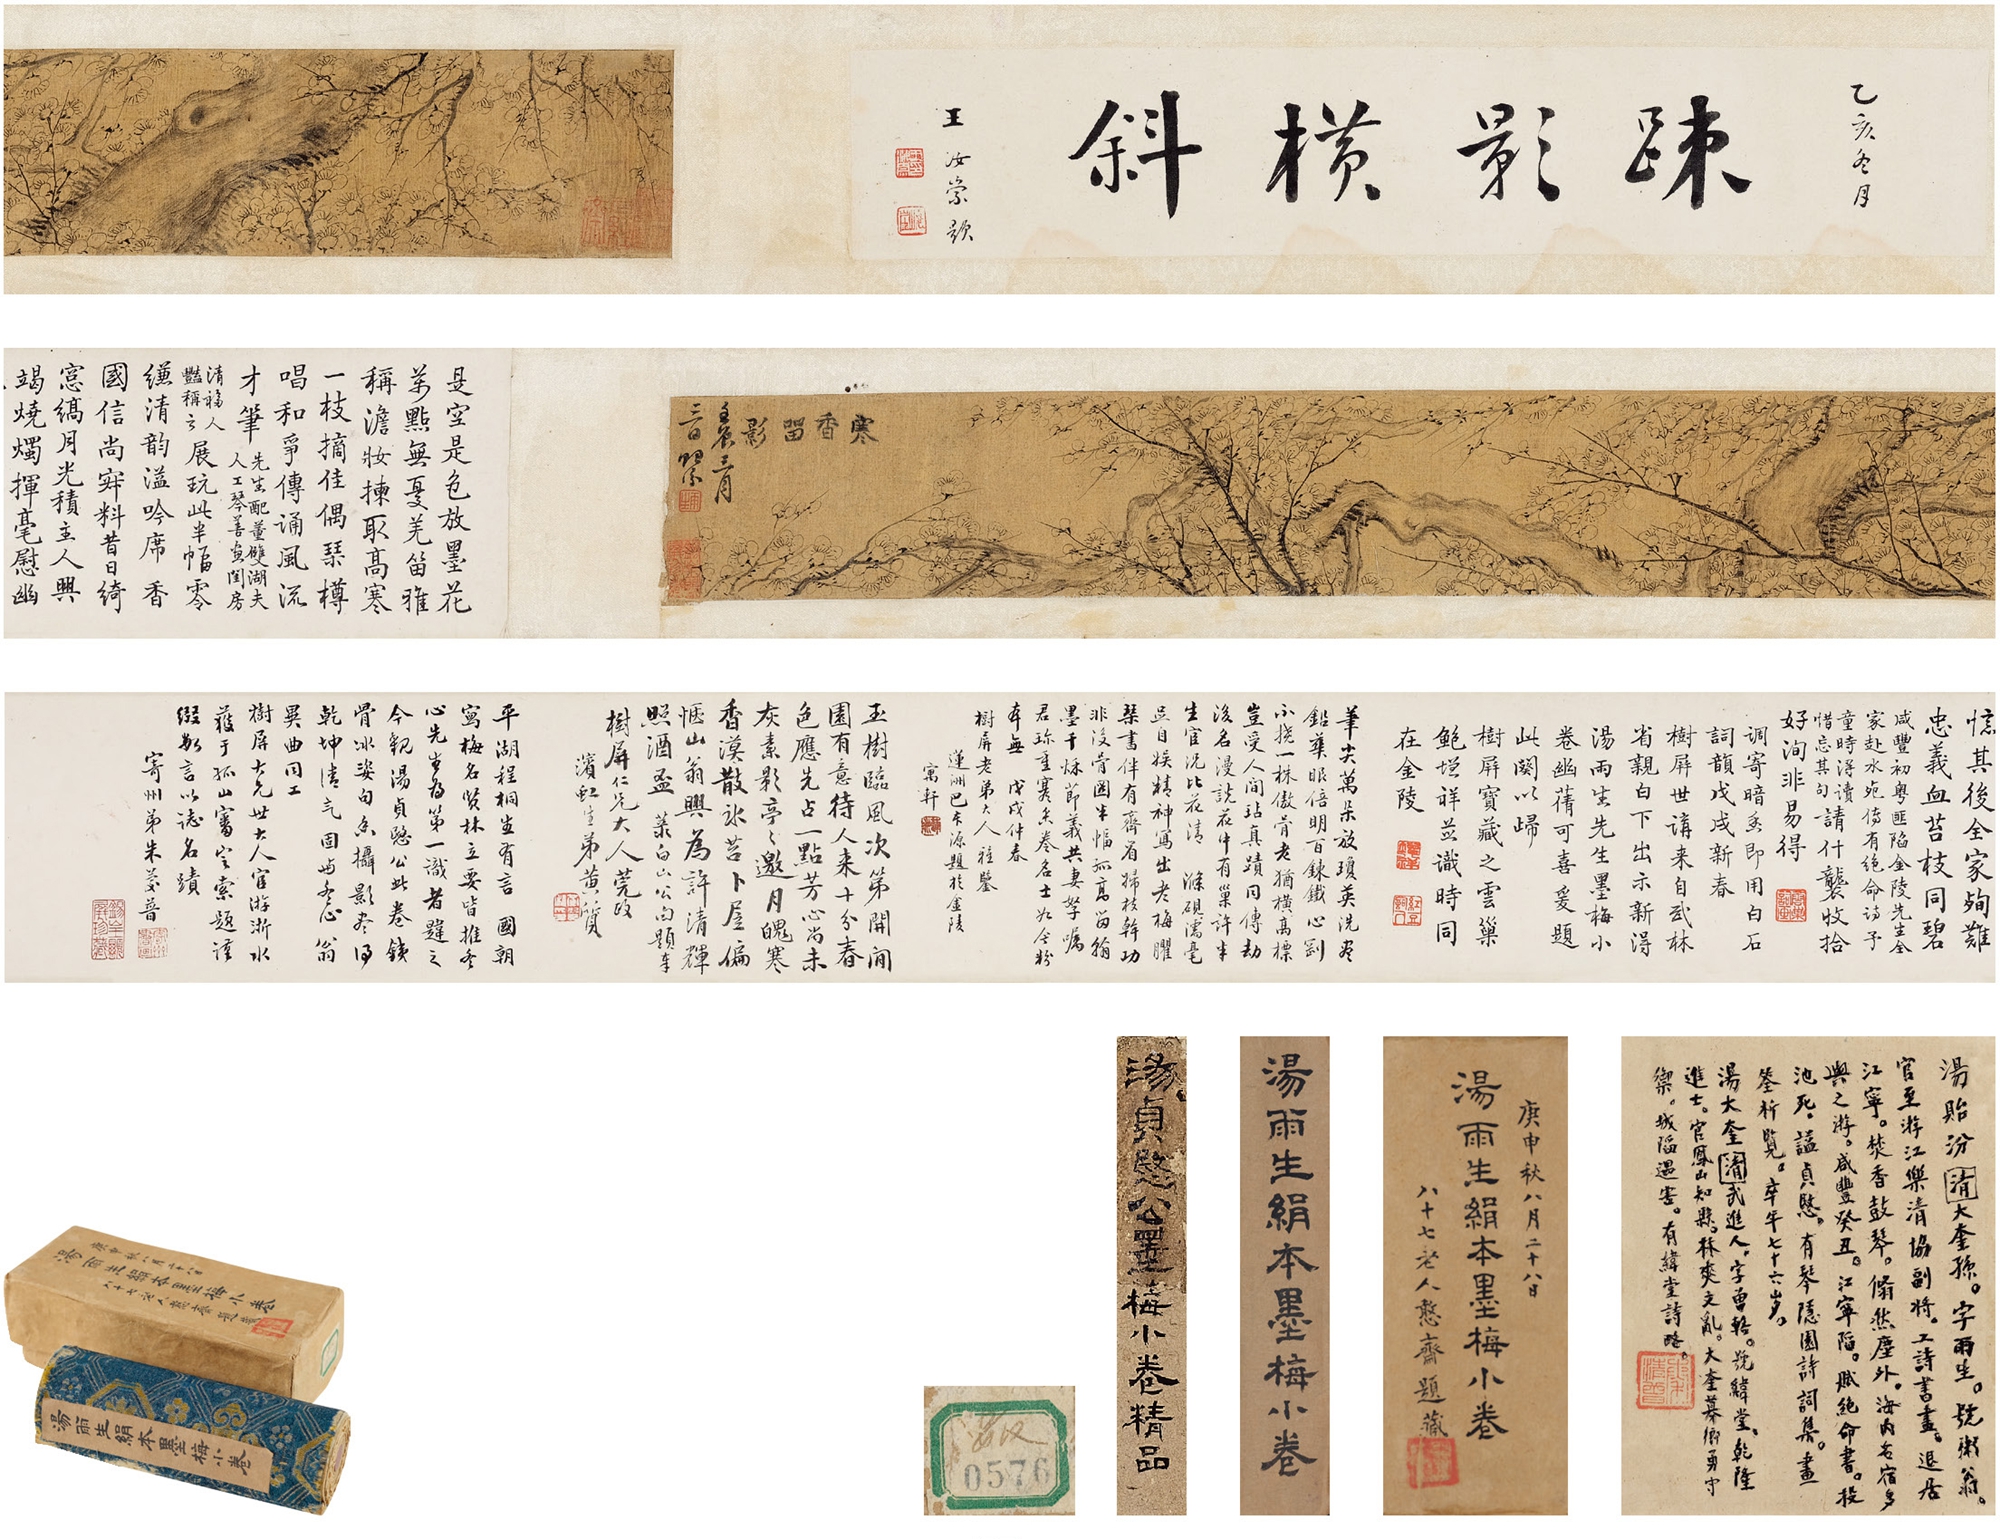 乙亥冬月
疎影橫斜
王汝崇題
寒香留影
壬辰三月
三日
是空是色放墨花
萬點無憂羌笛雅
稱澹妝揀取高寒
一枝摘佳偶琹樽
唱和爭傳誦風流
才筆
先生配董雙湖夫
人工琴善畫閨房
清福人
豔稱之
展玩此半幅零
縑清韵溢吟席香
國信尚穽料昔日綺
窓縞月光積主人興
竭燒燭揮毫慰幽
憶其後全家殉難
忠義血苔枝同碧
咸豐初粵匪陷金陵先生全
家赴水死傳有絕命詩予
童時得讀請什襲收拾
惜忘其句
好洵非易得
調寄暗香即用白石
詞韻戊戌新春
樹屏世講來自武林
省親白下出示新得
湯雨生先生墨梅小
卷幽蒨可喜爰題
此闋以歸
樹屏寶藏之雲巢
鮑增祥並識時同
在金陵
筆尖萬朵放瓊英洗盡
鉛華眼倍明百鍊鐵心剛
小撓一株傲骨老猶橫高標
豈受人間玷真蹟同傳劫
後名漫說花中有巢許半
生官況比花清 滌硯濡毫
吳自娛精神寫出老梅臞
琹書伴有齊眉婦枝幹功
非沒骨圖半幅孤高留翰
墨千秋節義共妻孥囑
君珍重寒香卷名士如今粉
本無 戊戌仲春
樹屏老弟大人雅鑒
蓮洲巴本源題於金陵
寓軒
玉樹臨風次第開閒
園有意待人来十分春
色應先占一點芳心尚未
灰素影亭亭邀月魄寒
香漠漠散冰苔卜居偏
愜山翁興為許清輝
照酒盃 叢白山公句題奉
樹屏仁兄大人莞政
濱虹生弟黃質
平湖程桐生有言 國朝
寫梅名賢林立要皆推冬
心先生為第一識者韙之
今觀湯貞愍公此卷鐵
骨冰姿句魚攝影盡得
乾坤清气固與冬心翁
異曲同工
樹屏大兄世大人宦游浙水
獲于孤山審定索題謹
綴數言以誌名蹟
寄州弟朱菱普
湯貽汾 清 大奎孫。字雨生。號粥翁。
官至游江樂清協副將。工詩書畫。退居
江寧。焚香鼓琴。翛然塵外。海内名宿多
與之游。咸豐癸丑。江寧陷。賦絕命書。投
池死。謚貞愍。有琴隱園詩詞集。畫
筌析覽。卒年七十六歲。
湯大奎 清 武進人。字曾輅。號緯堂。乾隆
進士。官鳳山知縣。林爽文亂。大奎募鄉勇守
禦。城陷遇害。有緯堂詩略。
庚申秋八月二十八日
湯雨生絹本墨梅小卷
八十七老人憨齋題藏
湯雨生絹本墨梅小卷
湯貞愍公墨梅小卷精品
0576
庚申秋八月二十八日
湯雨生絹本墨梅小卷
八十七老人憨齋題藏
湯雨生絹本墨梅小卷